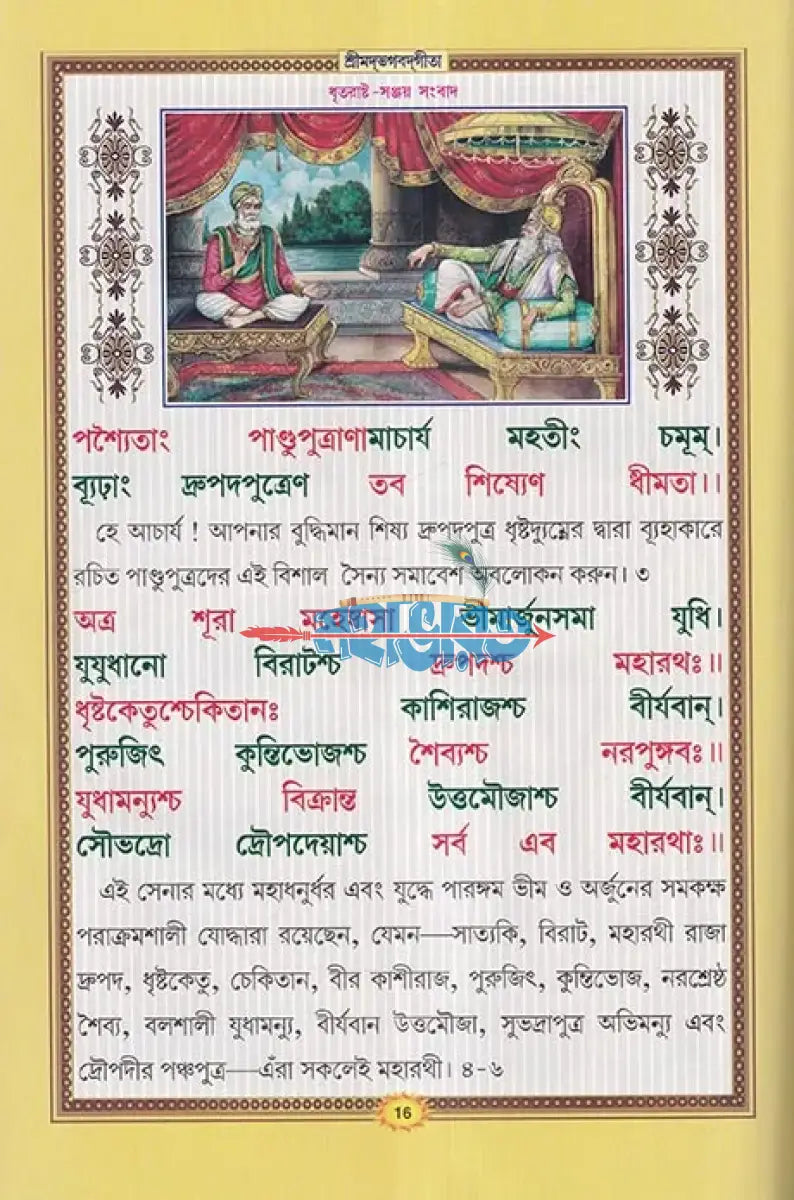 শ্রীমদ্‌ভগবদ্‌গীতা
ধৃতরাষ্ট-সঞ্জয় সংবাদ
পশ্যৈতাং পাণ্ডুপুত্রাণামাচার্য মহতীং চমূম্।
ব্যূঢ়াং দ্রুপদপুত্রেণ তব শিষ্যেণ ধীমতা।।
হে আচার্য ! আপনার বুদ্ধিমান শিষ্য দ্রুপদপুত্র ধৃষ্টদ্যুম্নের দ্বারা ব্যূহাকারে
রচিত পাণ্ডুপুত্রদের এই বিশাল সৈন্য সমাবেশ অবলোকন করুন। ৩
অত্র শূরা মহেষ্বাসা ভীমার্জুনসমা যুধি।
মহাভারত
যুযুধানো বিরাটশ্চ দ্রুপদশ্চ মহারথঃ॥
ধৃষ্টকেতুশ্চেকিতানঃ কাশিরাজশ্চ বীর্যবান্।
পুরুজিৎ কুন্তিভোজশ্চ শৈব্যশ্চ নরপুঙ্গবঃ॥
যুধামন্যুশ্চ বিক্রান্ত উত্তমৌজাশ্চ বীর্যবান্।
সৌভদ্রো দ্রৌপদেয়াশ্চ সর্ব এব মহারথাঃ॥
এই সেনার মধ্যে মহাধনুর্ধর এবং যুদ্ধে পারঙ্গম ভীম ও অর্জুনের সমকক্ষ
পরাক্রমশালী যোদ্ধারা রয়েছেন, যেমন—সাত্যকি, বিরাট, মহারথী রাজা
দ্রুপদ, ধৃষ্টকেতু, চেকিতান, বীর কাশীরাজ, পুরুজিৎ, কুন্তিভোজ, নরশ্রেষ্ঠ
শৈব্য, বলশালী যুধামন্যু, বীর্যবান উত্তমৌজা, সুভদ্রাপুত্র অভিমন্যু এবং
দ্রৌপদীর পঞ্চপুত্র—এঁরা সকলেই মহারথী। ৪-৬
16